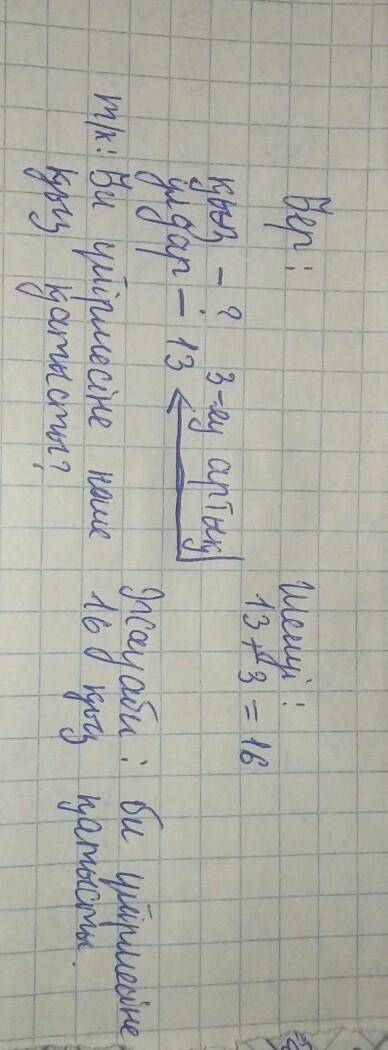 Бер:
қыз - ? 3-еу артық
ұлдар - 13
т/к: Би үйірмесіне неше
қыз қатысты?
Шешуі:
13+3=16
Жауабы: би үйірмесіне
16 қыз қатысты.